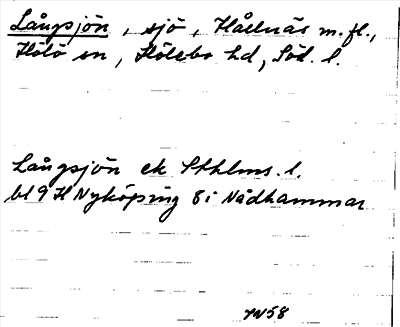 Långsjön, sjö, Hållnäs m. fl.,
Hölö sn, Hölebo hd, Söd. l.
Långsjön ek Sthlms. l.
bl 9 H Nyköping 8 i Nådhammar
YN58